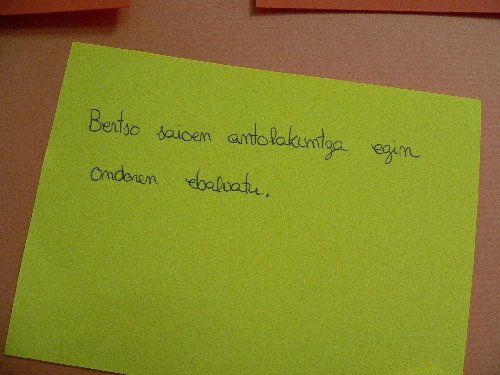 Bertso saioen antolakuntza egin
ondoren ebaluatu.